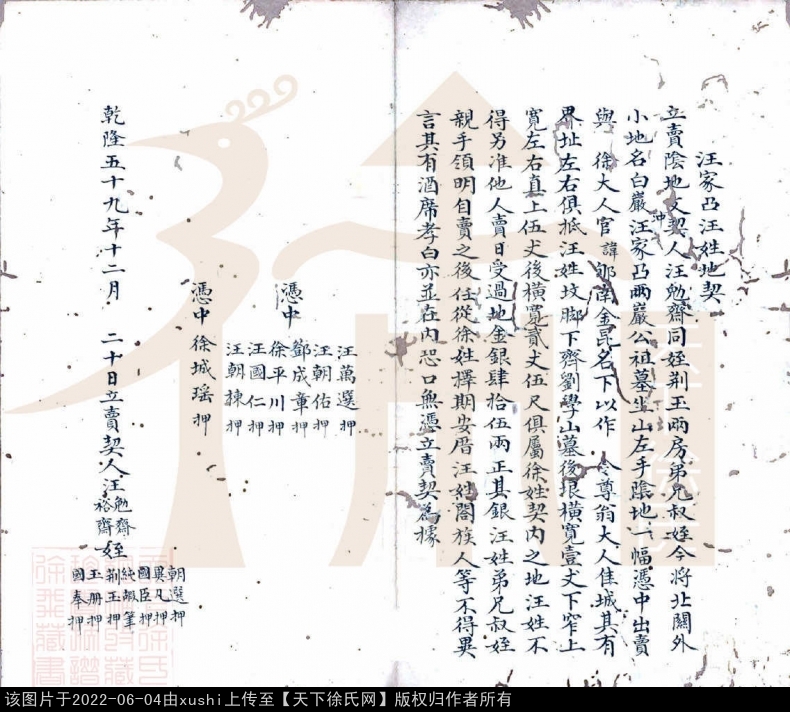 汪家凸汪姓地契
立賣陰地文契人汪勉齋同姪荊玉兩房弟兄叔姪今將北關外
小地名白巖冲汪家凸兩巖公祖墓坐山左手陰地一幅憑中出賣
與 徐大人官諱 南金昆名下以作 令尊翁大人佳城其有
界址左右俱抵汪姓坟脚下齊劉學山墓後埌橫寬壹丈下窄上
寬左右直上伍丈後橫寬貳丈伍尺俱屬徐姓契內之地汪姓不
得另准他人賣日受過地金銀肆拾伍兩正其銀汪姓弟兄叔姪
親手領明自賣之後任從徐姓擇期安厝汪姓閤族人等不得異
言其有酒席孝白亦並在內恐口無憑立賣契為據
憑中
汪萬選押
汪朝佑押
鄧成章押
徐平川押
汪國仁押
汪朝棟押
憑中 徐城瑤押
乾隆五十九年十二月 二十日立賣契人汪勉齋
裕齋
姪
朝選押
巽凡押
國臣押
純嘏筆
荊玉押
玉册押
國奉押
徐氏
该图片于2022-06-04由xushi上传至【天下徐氏网】版权归作者所有